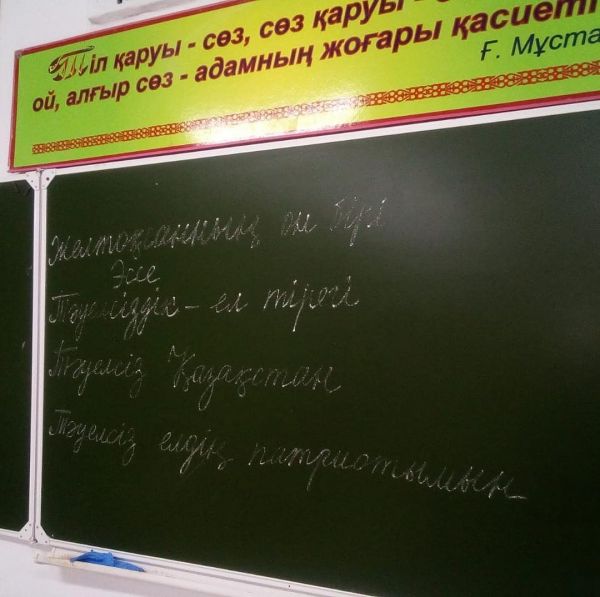 Тіл қаруы - сөз, сөз қаруы -
ой, алғыр сөз - адамның жоғары қасиеті
Ғ. Мұста
Желтоқсанның он бірі
Эссе
Тәуелсіздік – ел тірегі
Тәуелсіз Қазақстан
Тәуелсіз елдің патриотымын